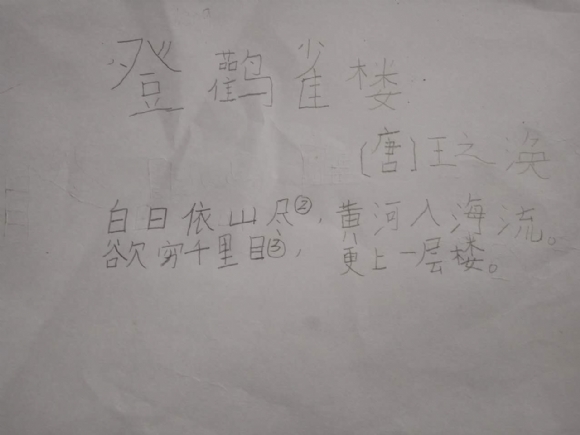 登鹳雀楼
[唐]王之涣
白日依山尽②,黄河入海流。
欲穷千里目③,更上一层楼。